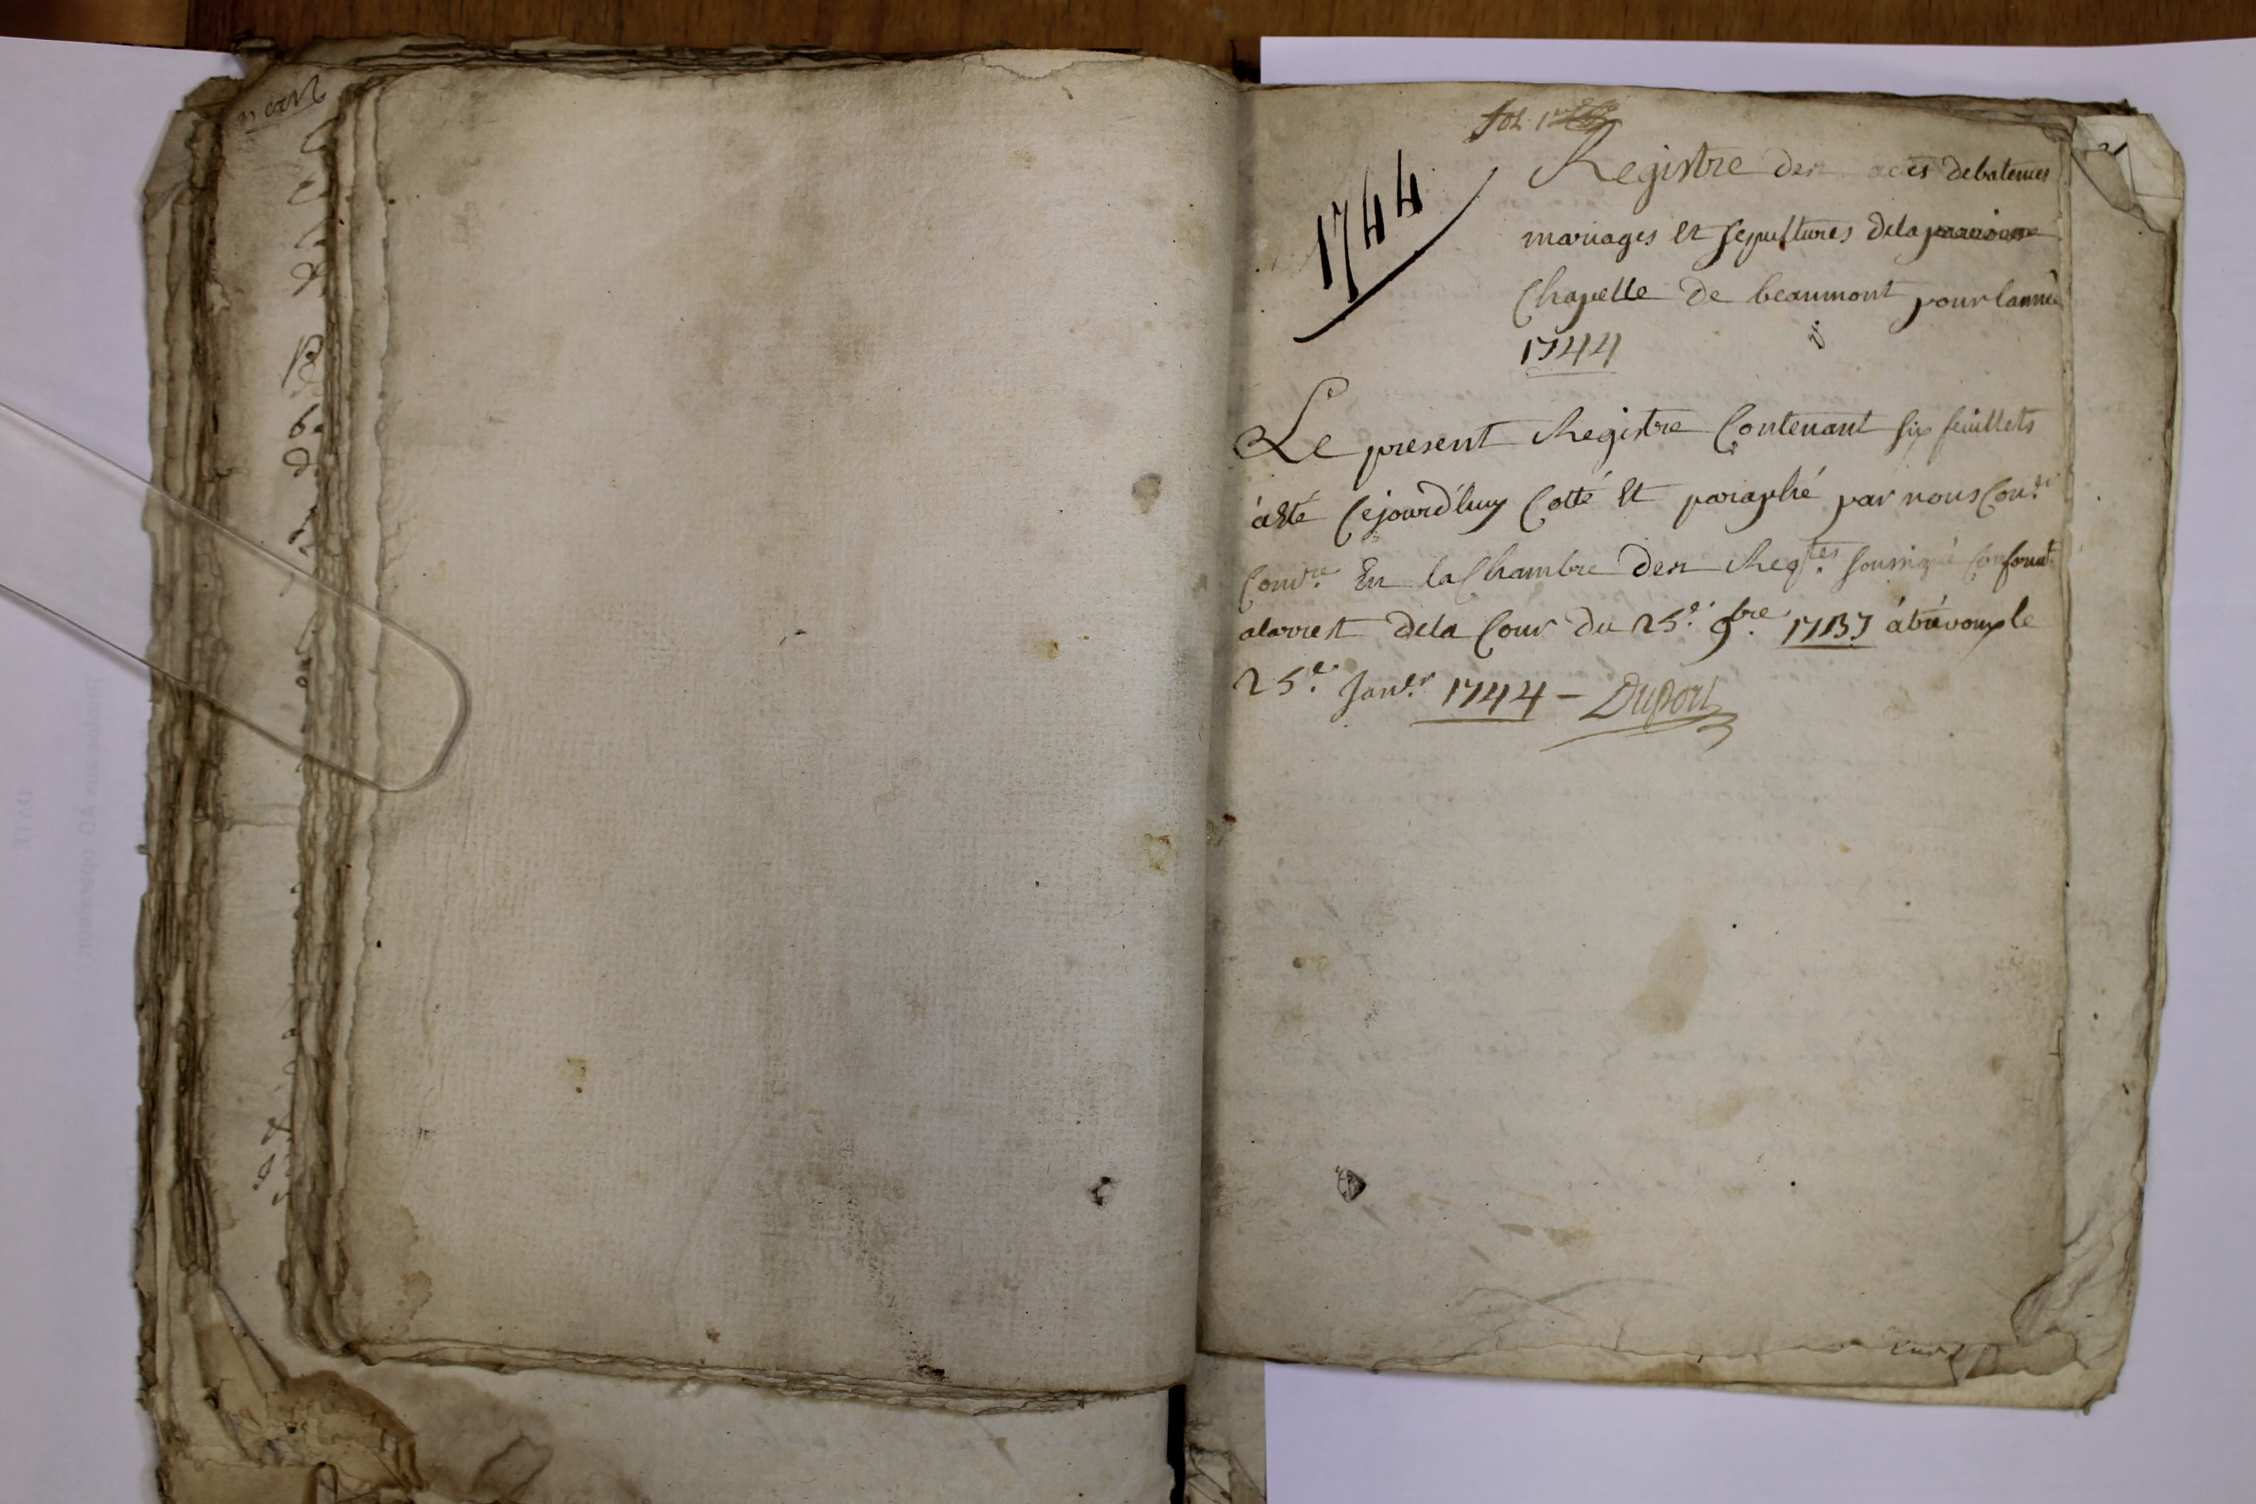 fol. 1er
1744
Registre des actes debatemes
mariages et sepultures dela paroisse
Chapelle de beaumont pour lannée
1744
Le present Registre Contenant six feuillets
à été Cejourd'huy Cotté et paraphé par nous Con.er
Comre. En la Chambre des Reqtes. soussigné conformt.
alarrest dela Cour du 25.e 9bre. 1737 à trévoux le
25.e Janer. 1744 - Duport